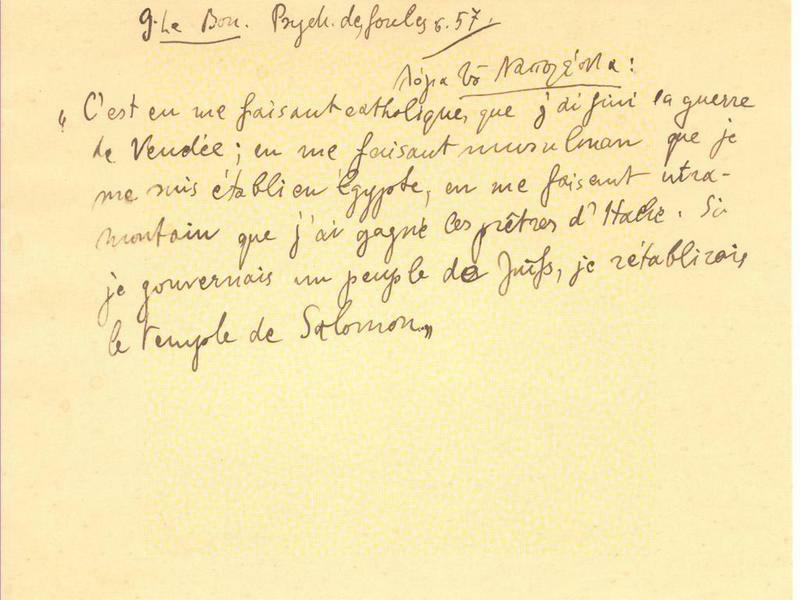 G. Le Bon. Psych. des foules σ. 57.
λόγια τοῦ Ναπολέοντα:
„ C'est en me faisant catholique, que j'ai fini la guerre
de Vendée ; en me faisant musulman que je
me suis établi en Égypte, en me faisant ultra-
montain que j'ai gagné les prêtres d'Italie. Si
je gouvernais un peuple de Juifs, je rétablirais
le temple de Salomon „